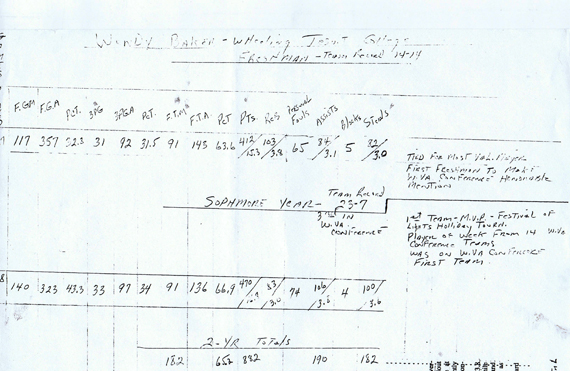 WENDY BAKER - Wheeling Jesuit College
FRESHMAN - Team Record 14-14
F.GM F.G.A PCT. 3PG 3PGA PCT. F.T.M F.T.A PCT PTS. REB Personal Fouls Assists Blocks Steals
117 357 31 92 31.5 91 143 63.6 412/15.3 103/3.8 65 84/3.1 5 82/3.0
Tied For Most Val. Player
First Freshman To Make
W.VA Conference Honorable
Mention
SOPHMORE YEAR - Team Record 23-7
3rd IN
W.VA
CONFERENCE
1st Team - M.V.P. - Festival of
Lights Holliday Tourn.
Player of Week From 14 W.Va
Conference Teams
WAS ON W.VA CONFERENCE
FIRST TEAM
140 323 43.3 33 97 34 91 136 66.9 470/ 83/ 74 106/ 4 100/
2-YR TOTALS
182 652 882 190 182